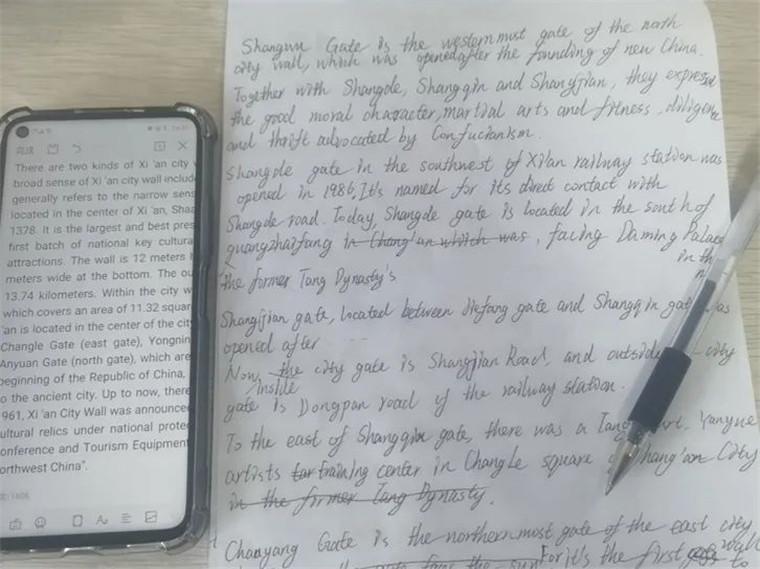 完成
There are two kinds of Xi 'an city
broad sense of Xi 'an city wall includ
generally refers to the narrow sens
located in the center of Xi 'an, Shaa
1378. It is the largest and best pres
first batch of national key cultura
attractions. The wall is 12 meters h
meters wide at the bottom. The ou
13.74 kilometers. Within the city w
which covers an area of 11.32 squar
'an is located in the center of the cit
Changle Gate (east gate), Yongnin
Anyuan Gate (north gate), which are
beginning of the Republic of China,
o the ancient city. Up to now, there
961, Xi 'an City Wall was announce
ultural relics under national protec
onference and Tourism Equipment
orthwest China".
Shangwu Gate is the westernmost gate of the north
city wall, which was opened after the founding of new China.
Together with Shangde, Shangqin and Shangjian, they expressed
the good moral character, martial arts and fitness, diligence
and thrift advocated by Confucianism.
Shangde gate in the southwest of Xi'an railway station was
opened in 1986, It's named for its direct contact with
Shangde road. Today, Shangde gate is located in the south of
guangzhaifang in Chang'an which was, facing Daming Palace
in th
the former Tang Dynasty's
Shangjian gate, located between Jiefang gate and Shangqin gate was
opened after
Now, the city gate is Shangjian Road, and outside city
inside
gate is Dongpan road of the railway station.
To the east of Shangqin gate, there was a Yanyue
artists training center in Changle square Chang'an City
in the former Tang Dynasty.
Chaoyang Gate is the northernmost gate of the east city
wall
the sun For it's the first to